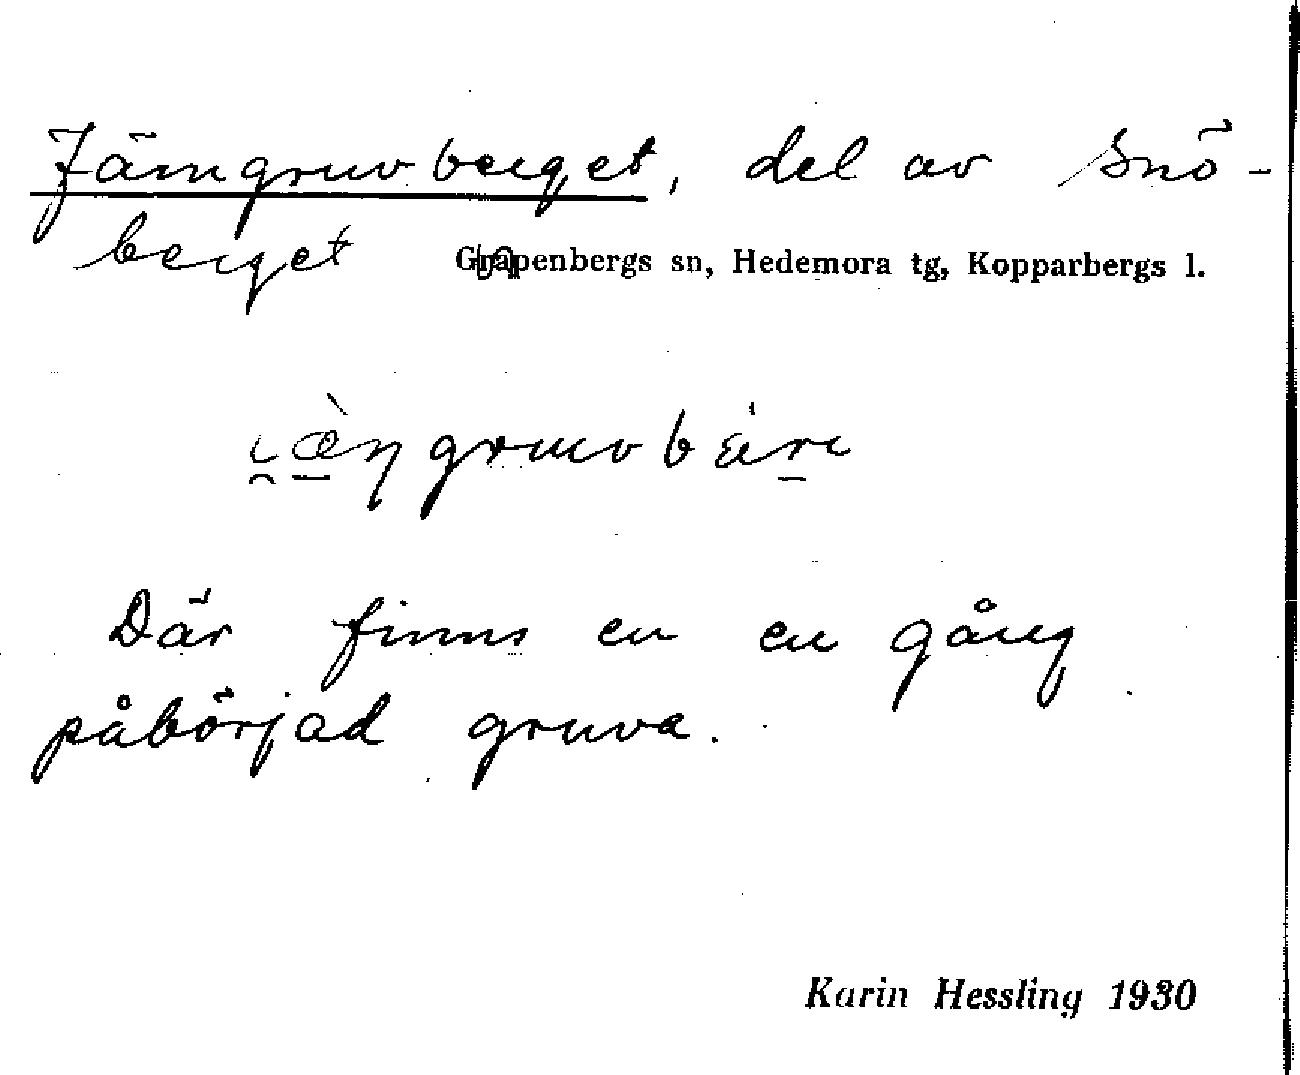 Järngruvberget, del av Snö-
berget Garpenbergs sn, Hedemora tg, Kopparbergs l.
Där finns en en gång
påbörjad gruva.
Karin Hessling 1930